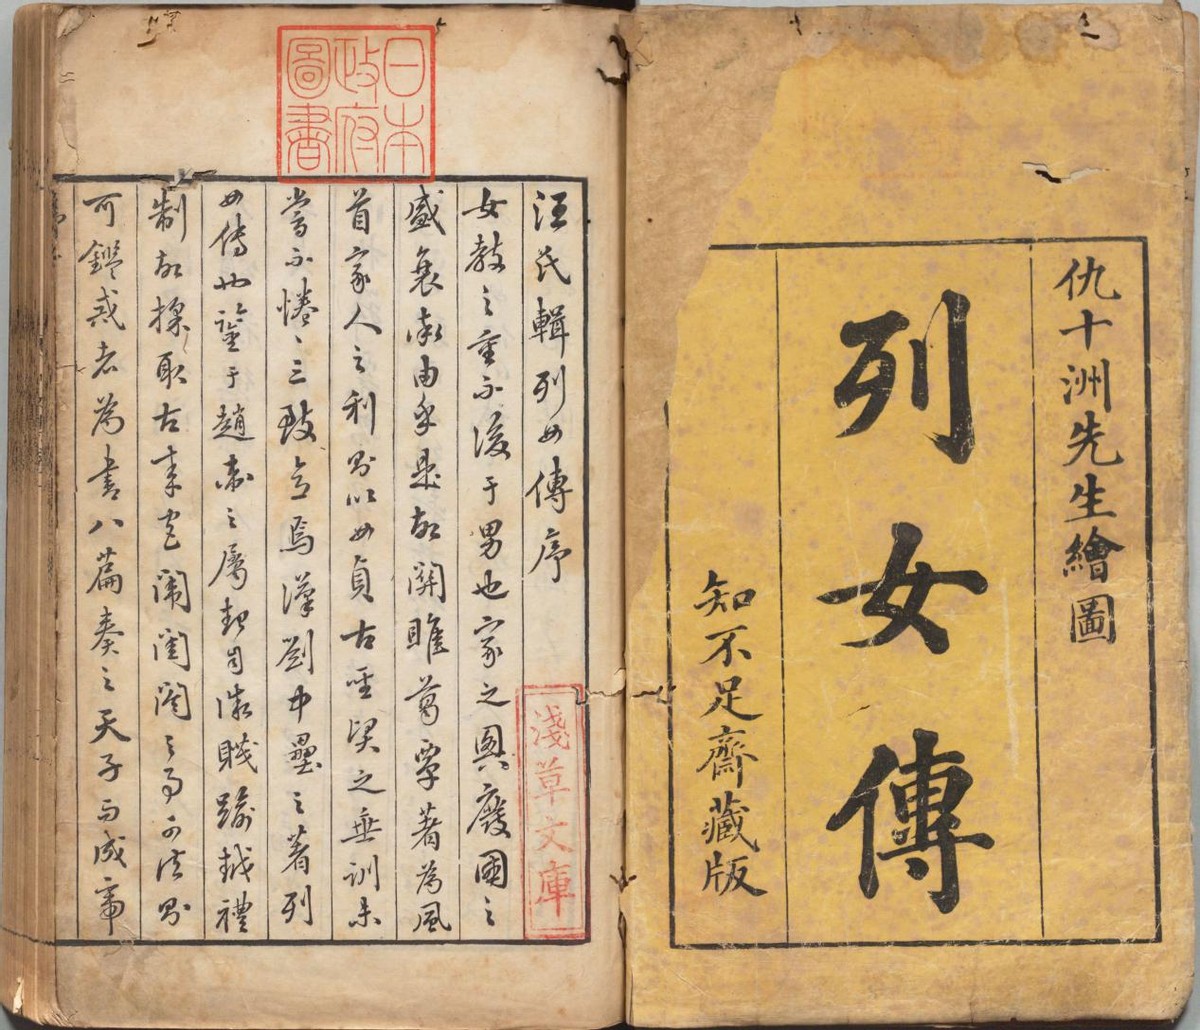 仇十洲先生繪圖
列女傳
知不足齋藏版
日本
政府
圖書
汪氏輯列女傳序
女教之重不後于男也家之興廢國之
盛衰率由乎是故關雎葛覃著為風
首家人之利則以女貞古聖賢之垂訓未
嘗不惓〻三致意焉漢劉中壘之著列
女傳也鑒于趙衛之屬起自微賤踰越禮
制故採取古來宮闈閨閤之事可法則
可鑑戒者為書八篇奏之天子而成帝
淺草文庫